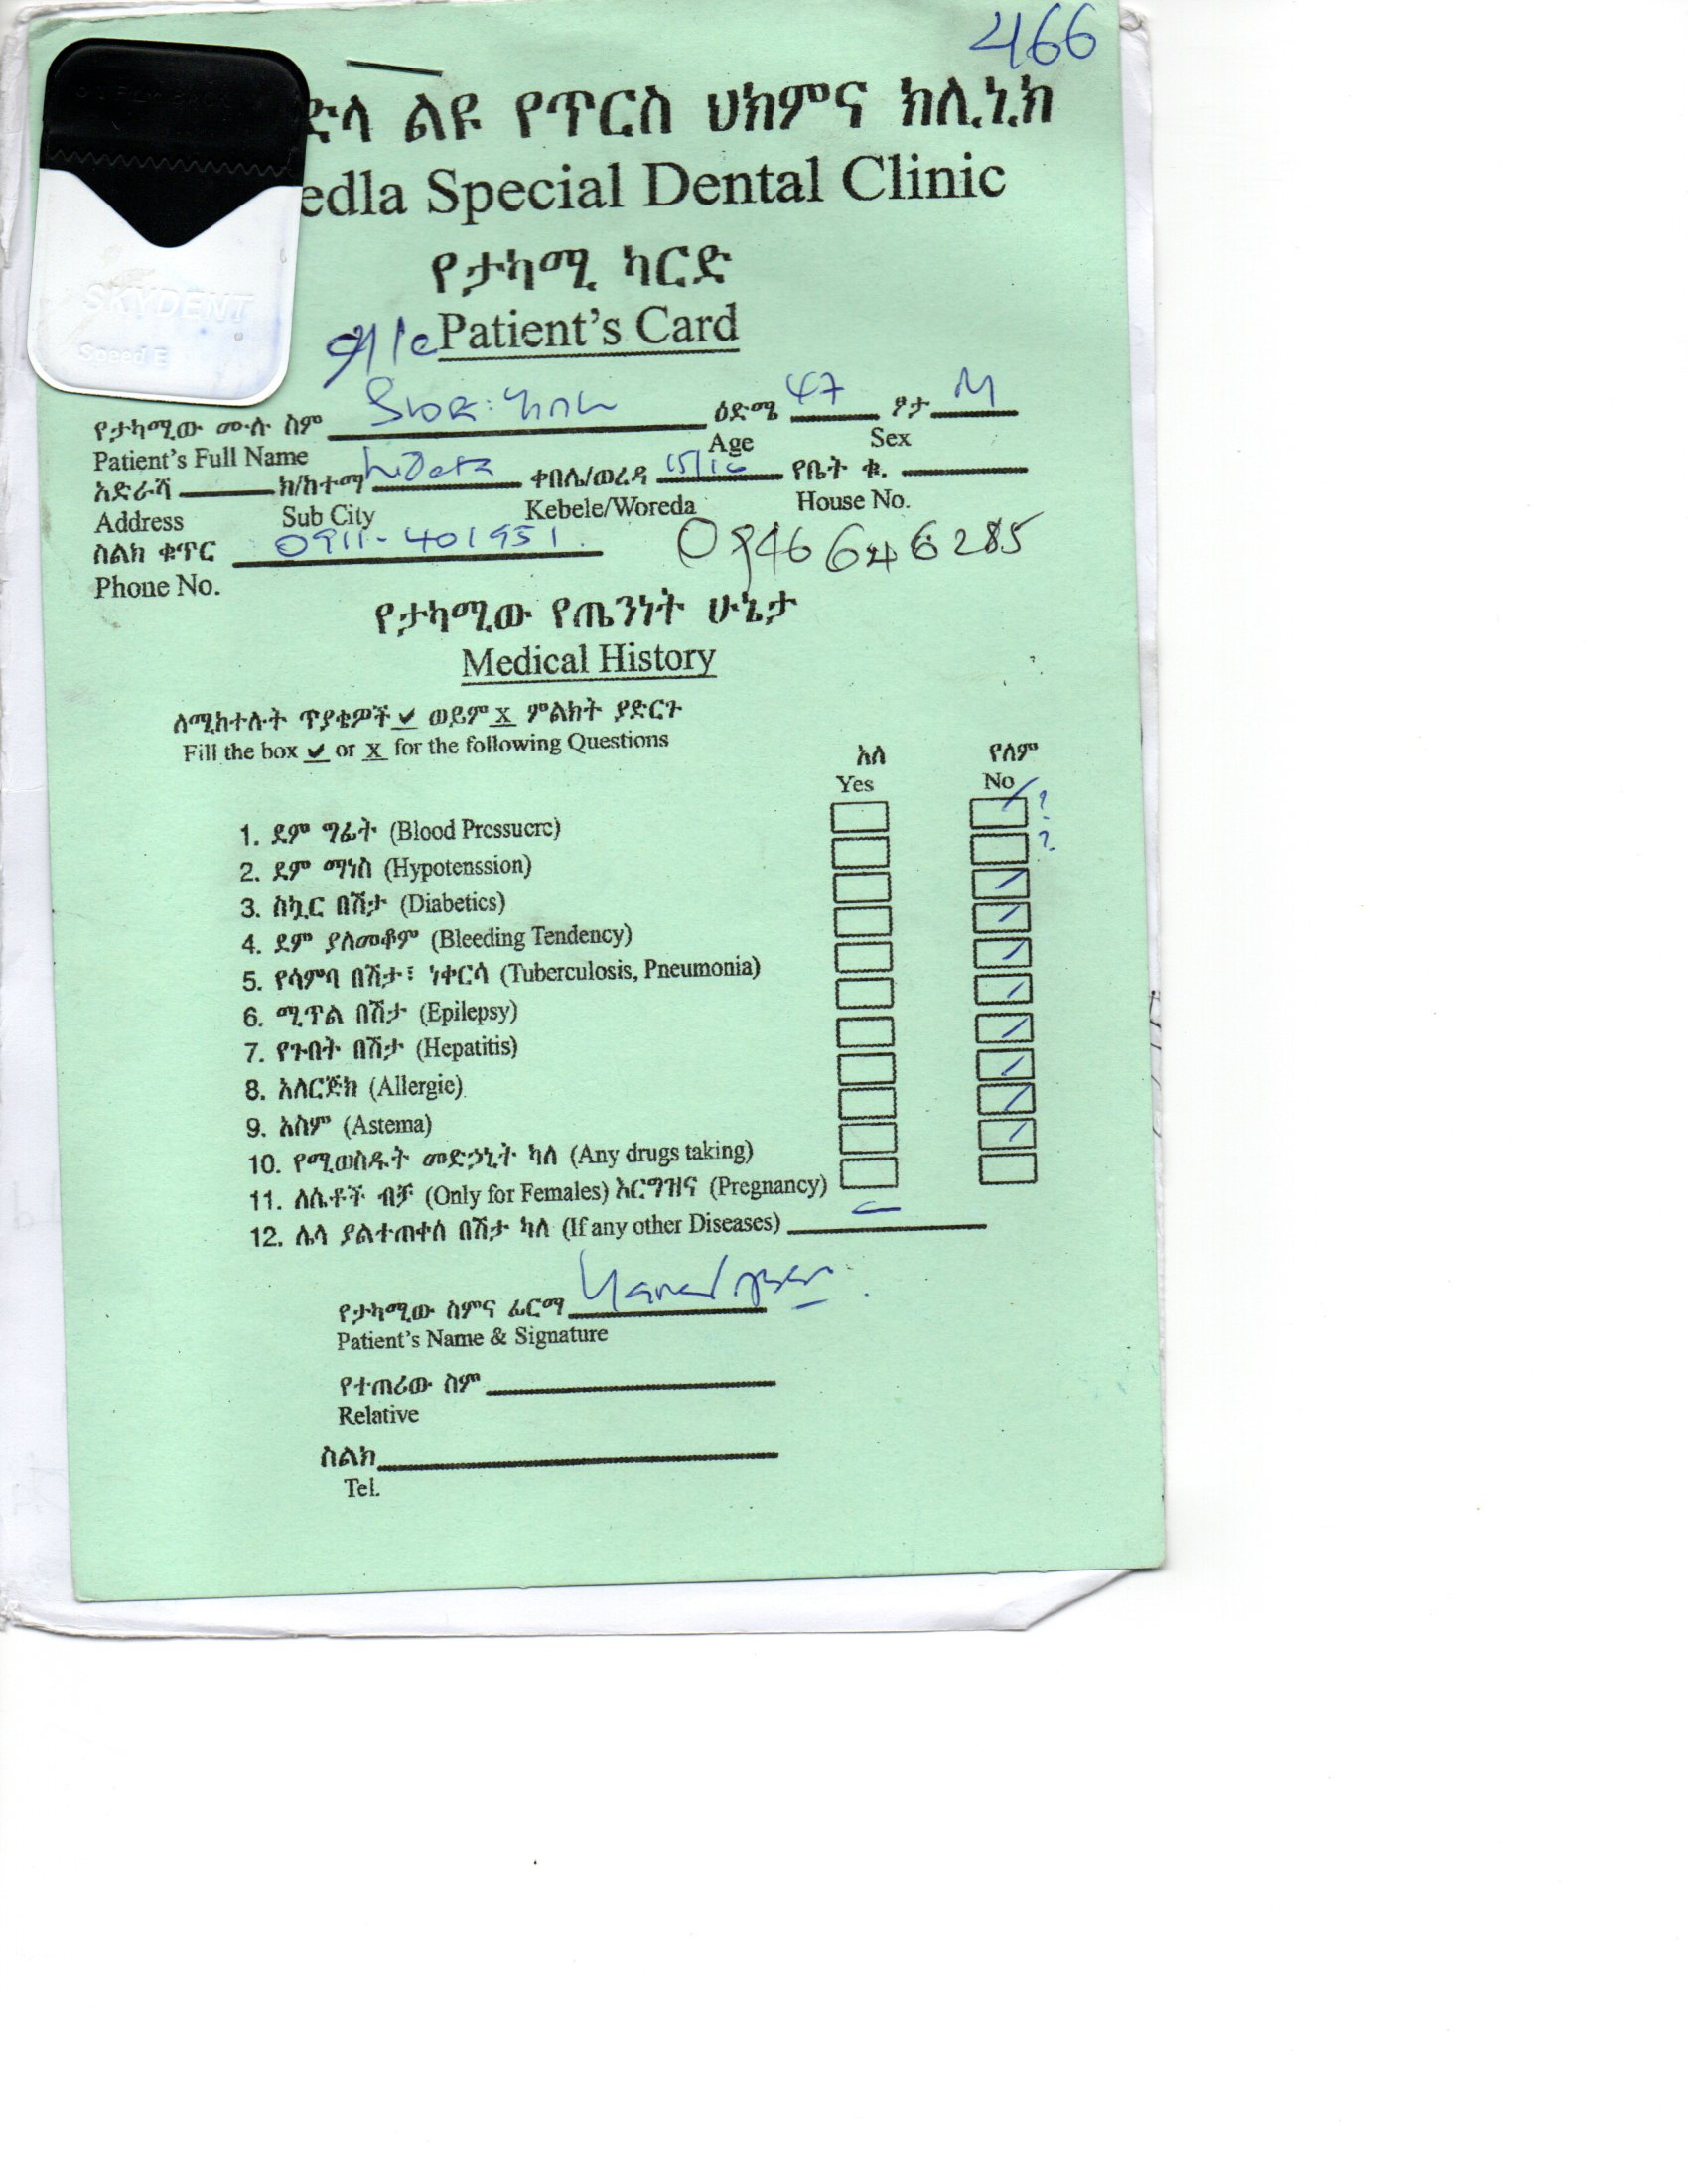 466
ድላ ልዩ የጥርስ ህክምና ክሊኒክ
edla Special Dental Clinic
የታካሚ ካርድ
Patient's Card
SKYDENT
Speed E
የታካሚው ሙሉ ስም ዕድሜ 47 ፆታ M
Patient's Full Name Age Sex
አድራሻ ክ/ከተማ ቀበሌ/ወረዳ የቤት ቁ.
Address Sub City Kebele/Woreda House No.
ስልክ ቁጥር 0911-401951
Phone No.
የታካሚው የጤንነት ሁኔታ
Medical History
ለሚከተሉት ጥያቄዎች ✓ ወይም X ምልክት ያድርጉ
Fill the box ✓ or X for the following Questions
አለ የለም
Yes No
1. ደም ግፊት (Blood Pressuere) ?
2. ደም ማነስ (Hypotenssion) ?
3. ስኳር በሽታ (Diabetics)
4. ደም ያለመቆም (Bleeding Tendency)
5. የሳምባ በሽታ፣ ነቀርሳ (Tuberculosis, Pneumonia)
6. ሚጥል በሽታ (Epilepsy)
7. የጉበት በሽታ (Hepatitis)
8. አለርጅክ (Allergie)
9. አስም (Astema)
10. የሚወስዱት መድኃኒት ካለ (Any drugs taking)
11. ለሴቶች ብቻ (Only for Females) እርግዝና (Pregnancy)
12. ሌላ ያልተጠቀሰ በሽታ ካለ (If any other Diseases)
የታካሚው ስምና ፊርማ
Patient's Name & Signature
የተጠሪው ስም
Relative
ስልክ
Tel.